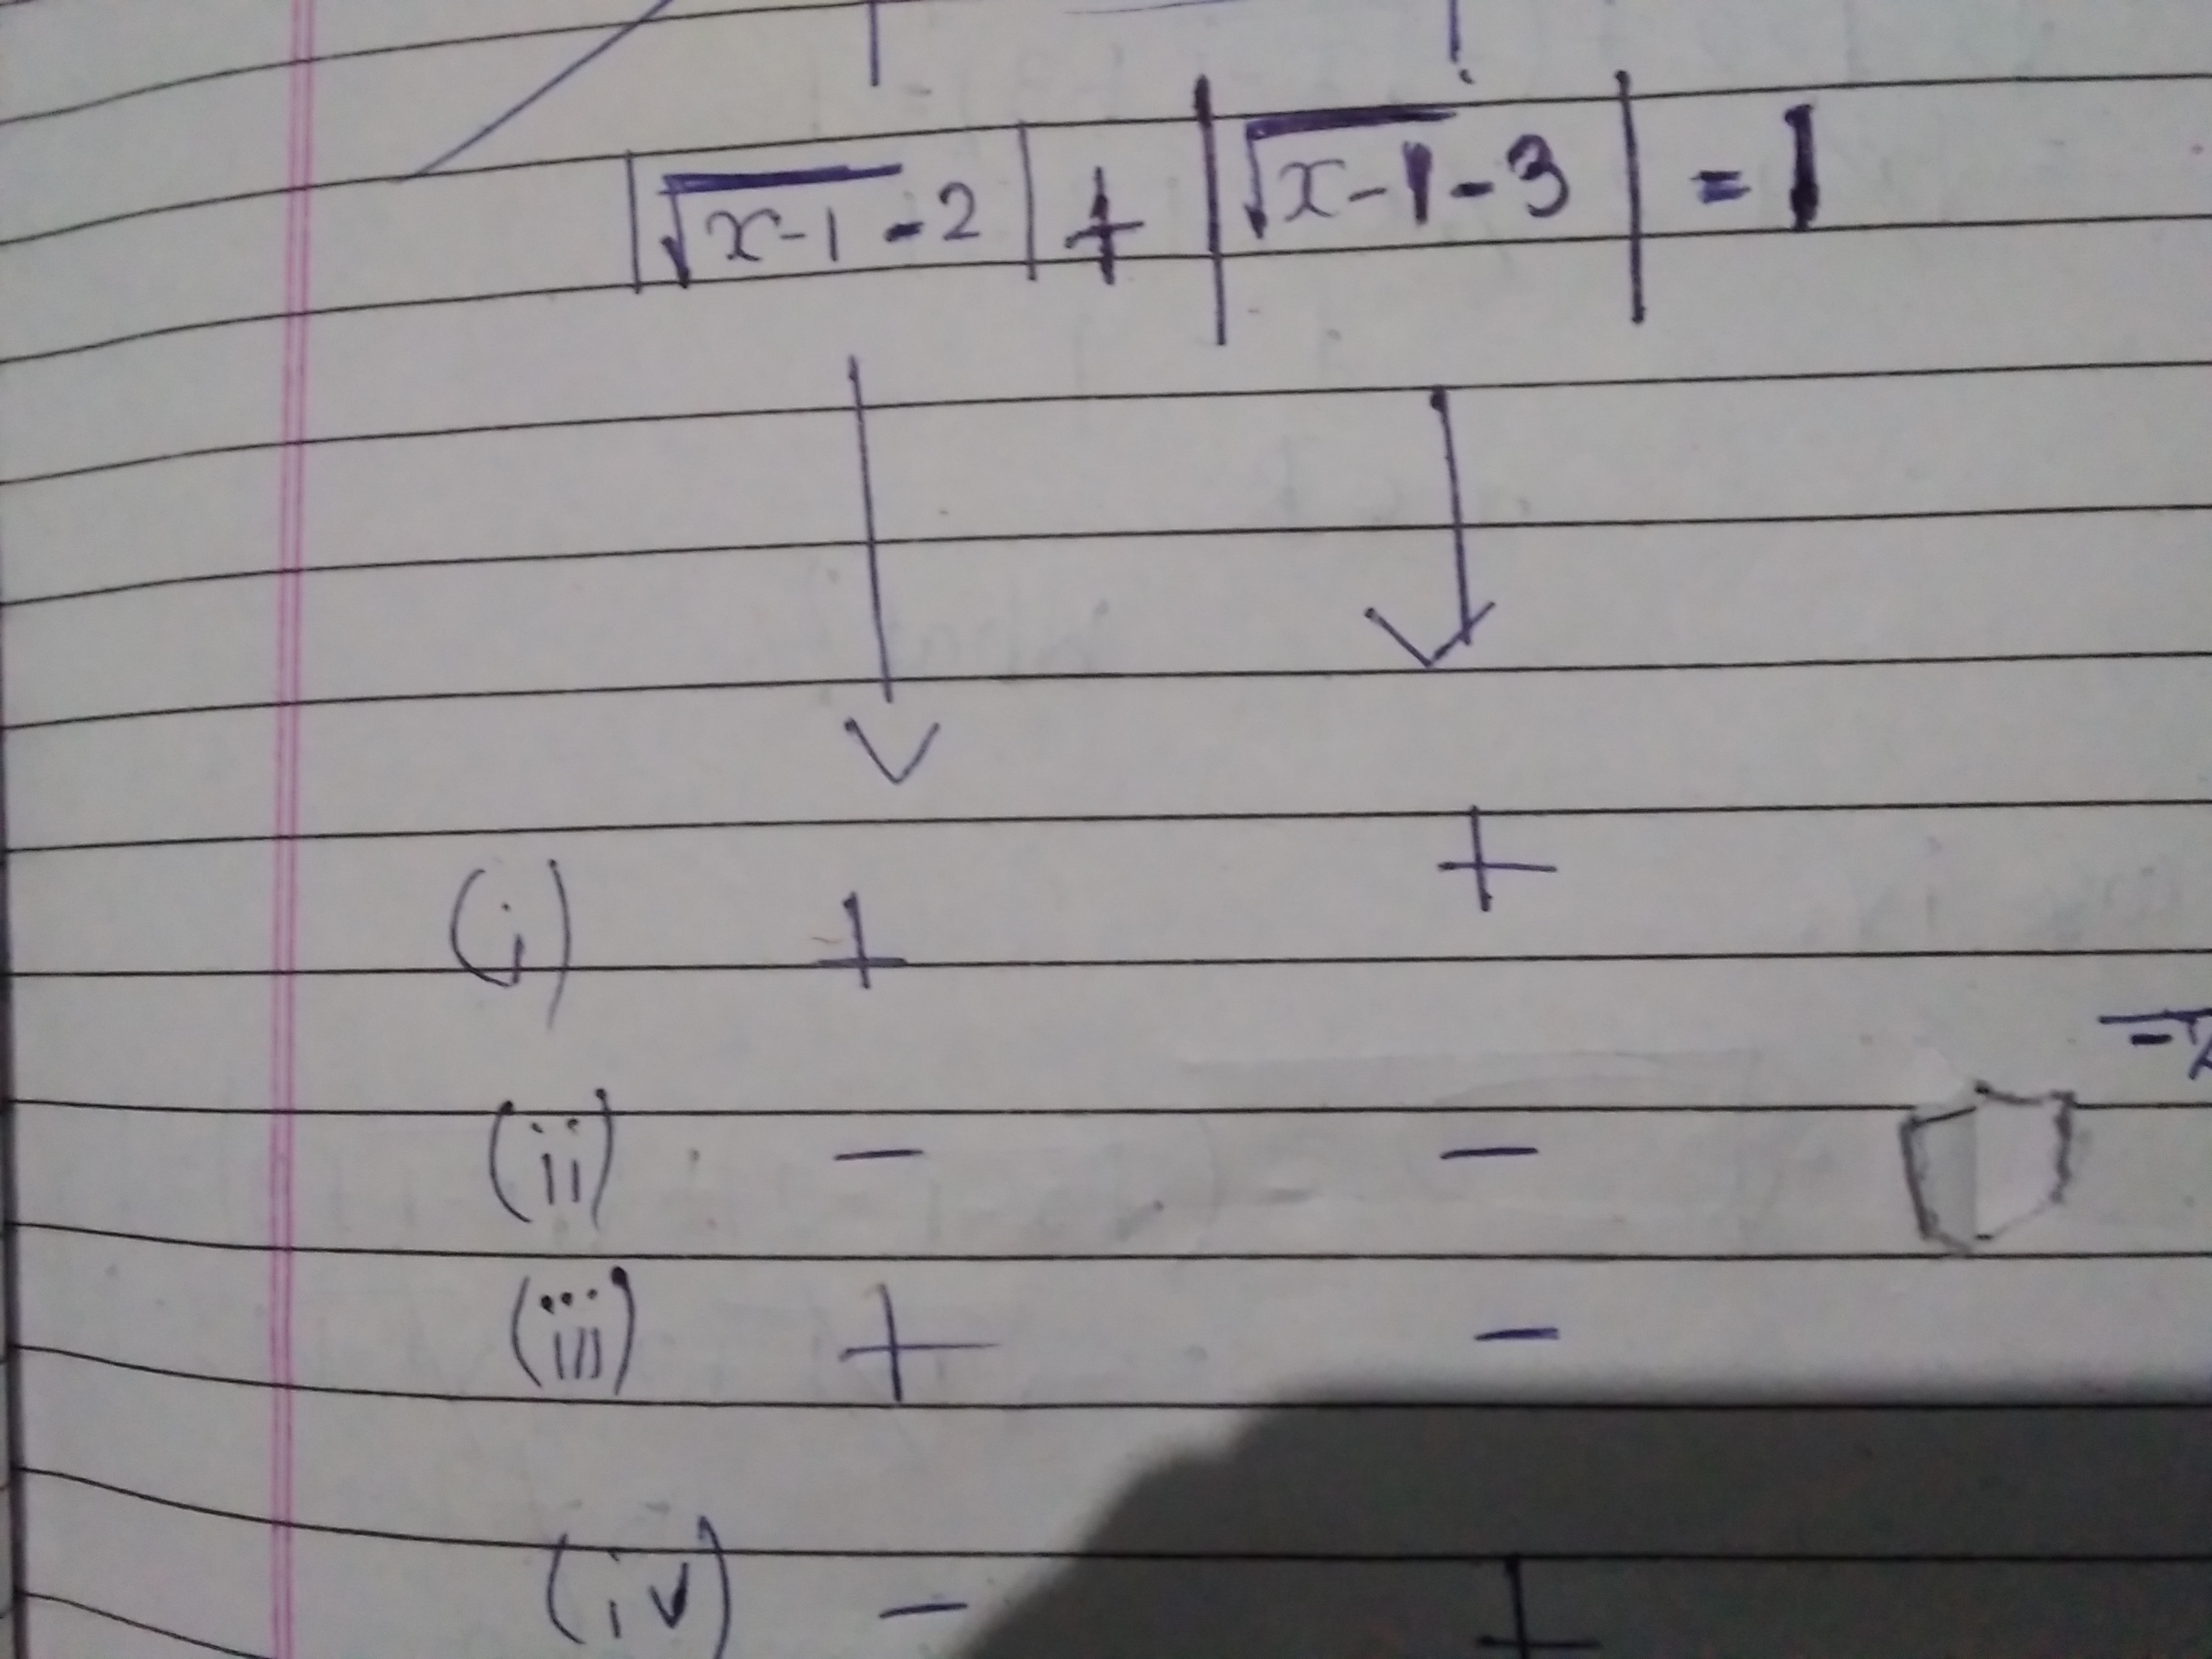 |√x-1 - 2| + |√x-1 - 3| = 1
(i) + +
(ii) - -
(iii) + -
(iv) - +